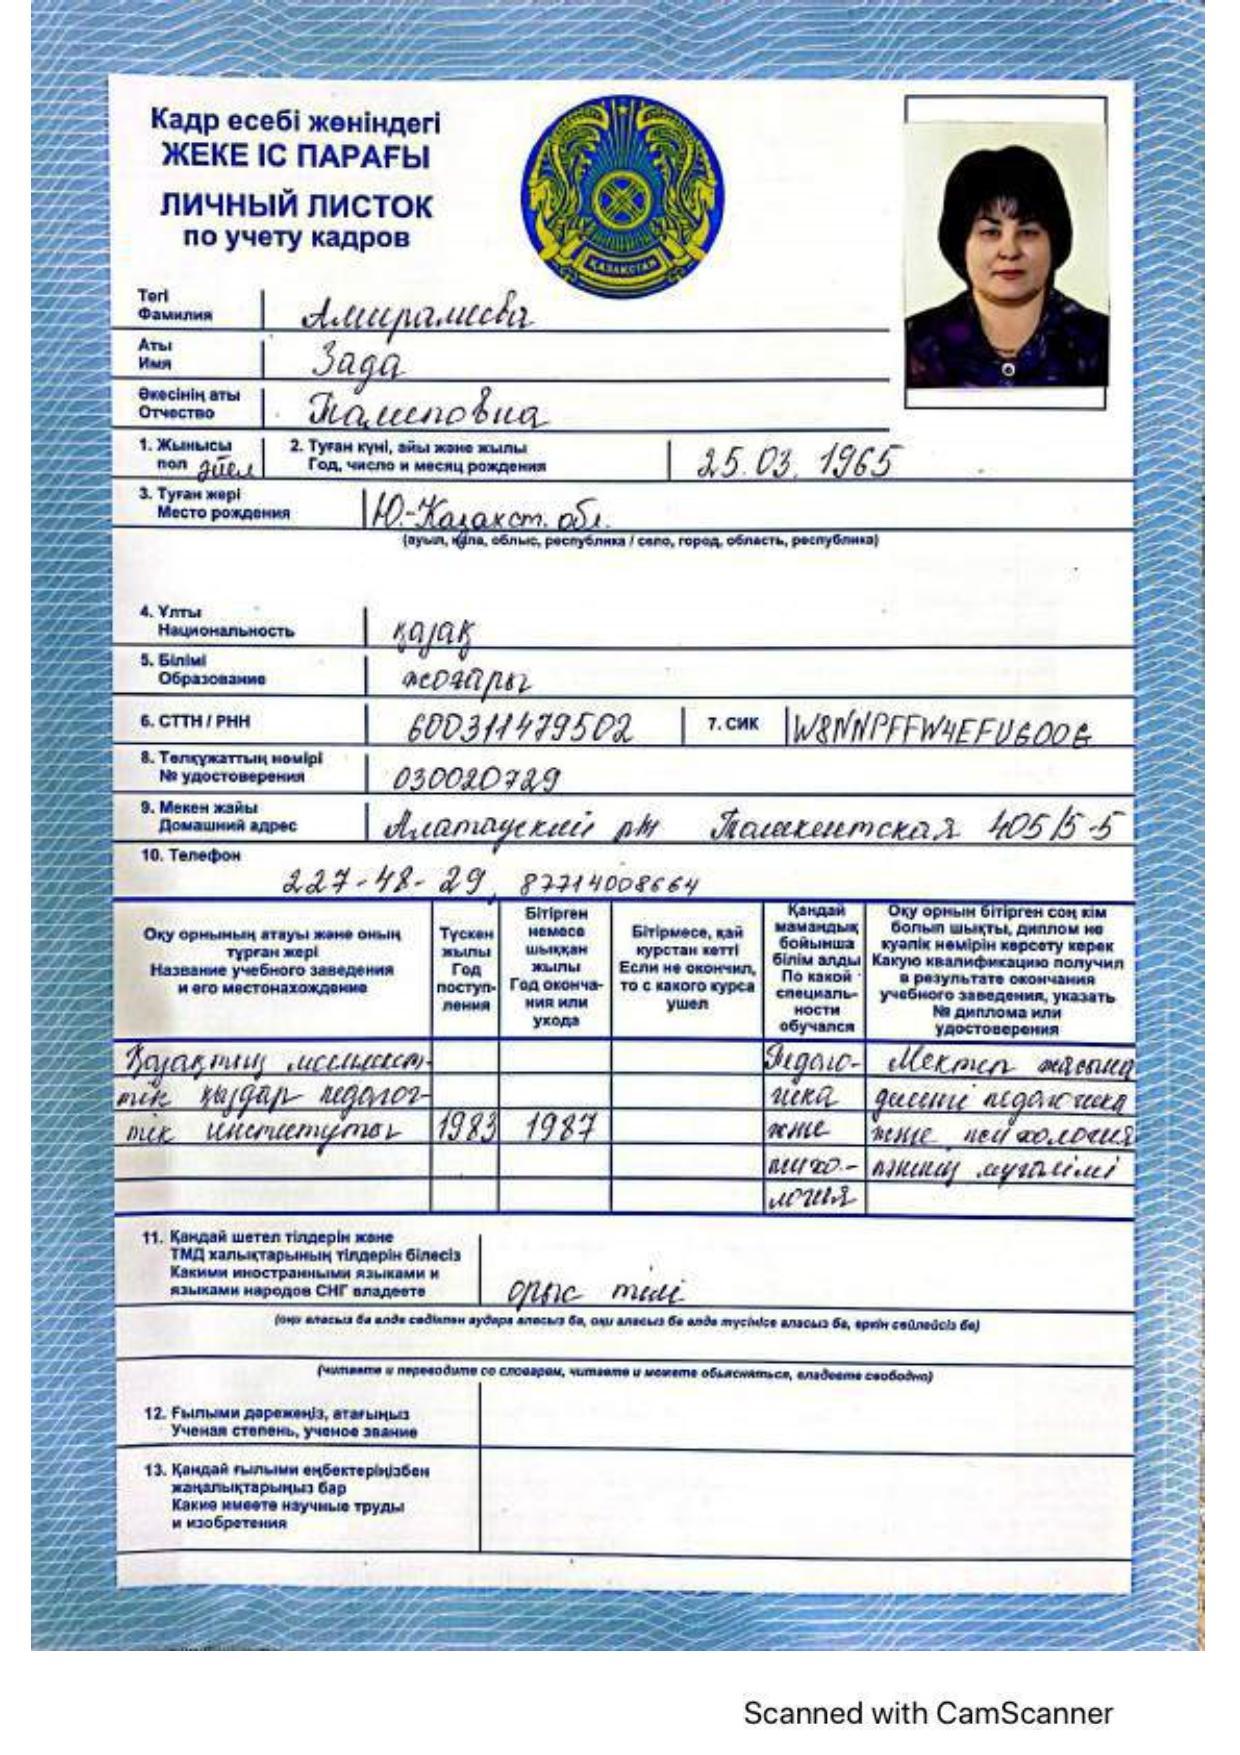 Кадр есебі жөніндегі
ЖЕКЕ ІС ПАРАҒЫ
ЛИЧНЫЙ ЛИСТОК
по учету кадров
ҚАЗАҚСТАН
Тегі
Фамилия
Аты
Имя
Зада
Әкесінің аты
Отчество
1. Жынысы
пол әйел
2. Туған күні, айы және жылы
Год, число и месяц рождения
25.03. 1965
3. Туған жері
Место рождения
Ю.-Казахст. обл.
(ауыл, қала, облыс, республика / село, город, область, республика)
4. Ұлты
Национальность
қазақ
5. Білімі
Образование
жоғары
6. СТТН / РНН
600311479502
7. СИК
W8NNPFFW4EFUG00G
8. Төлқұжаттың нөмірі
№ удостоверения
030020729
9. Мекен жайы
Домашний адрес
Алатауский р-н Ташкентская 405/5-5
10. Телефон
227-48-29, 87714008664
Оқу орнының атауы және оның
тұрған жері
Название учебного заведения
и его местонахождение
Түскен
жылы
Год
поступ-
ления
Бітірген
немесе
шыққан
жылы
Год оконча-
ния или
ухода
Бітірмесе, қай
курстан кетті
Если не окончил,
то с какого курса
ушел
Қандай
мамандық
бойынша
білім алды
По какой
специаль-
ности
обучался
Оқу орнын бітірген соң кім
болып шықты, диплом не
куәлік нөмірін көрсету керек
Какую квалификацию получил
в результате окончания
учебного заведения, указать
№ диплома или
удостоверения
Қазақтың мемлекет- Педаго- Мектеп жасына
тік қыздар педагог- гика дейінгі педагогика
тік институты 1983 1987 және және психология
психо- пәнінің мұғалімі
логия
11. Қандай шетел тілдерін және
ТМД халықтарының тілдерін білесіз
Какими иностранными языками и
языками народов СНГ владеете
орыс тілі
(оқи аласыз ба алде сөдікпен аудара аласыз ба, оқи аласыз ба алде түсінісе аласыз ба, еркін сөйлейсіз бе)
(читаете и переводите со словарем, читаете и можете объясняться, владеете свободно)
12. Ғылыми дәрежеңіз, атағыңыз
Ученая степень, ученое звание
13. Қандай ғылыми еңбектеріңізбен
жаңалықтарыңыз бар
Какие имеете научные труды
и изобретения
Scanned with CamScanner